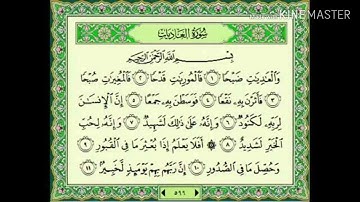 KINEMASTER
سُورَةُ العَادِيَاتِ
بِسْمِ اللَّهِ الرَّحْمَٰنِ الرَّحِيمِ
وَالْعَادِيَاتِ ضَبْحًا ١ فَالْمُورِيَاتِ قَدْحًا ٢ فَالْمُغِيرَاتِ صُبْحًا
٣ فَأَثَرْنَ بِهِ نَقْعًا ٤ فَوَسَطْنَ بِهِ جَمْعًا ٥ إِنَّ الْإِنسَانَ
لِرَبِّهِ لَكَنُودٌ ٦ وَإِنَّهُ عَلَىٰ ذَٰلِكَ لَشَهِيدٌ ٧ وَإِنَّهُ لِحُبِّ
الْخَيْرِ لَشَدِيدٌ ٨ ۞ أَفَلَا يَعْلَمُ إِذَا بُعْثِرَ مَا فِي الْقُبُورِ ٩
وَحُصِّلَ مَا فِي الصُّدُورِ ١٠ إِنَّ رَبَّهُم بِهِمْ يَوْمَئِذٍ لَّخَبِيرٌ ١١
٥٦٦